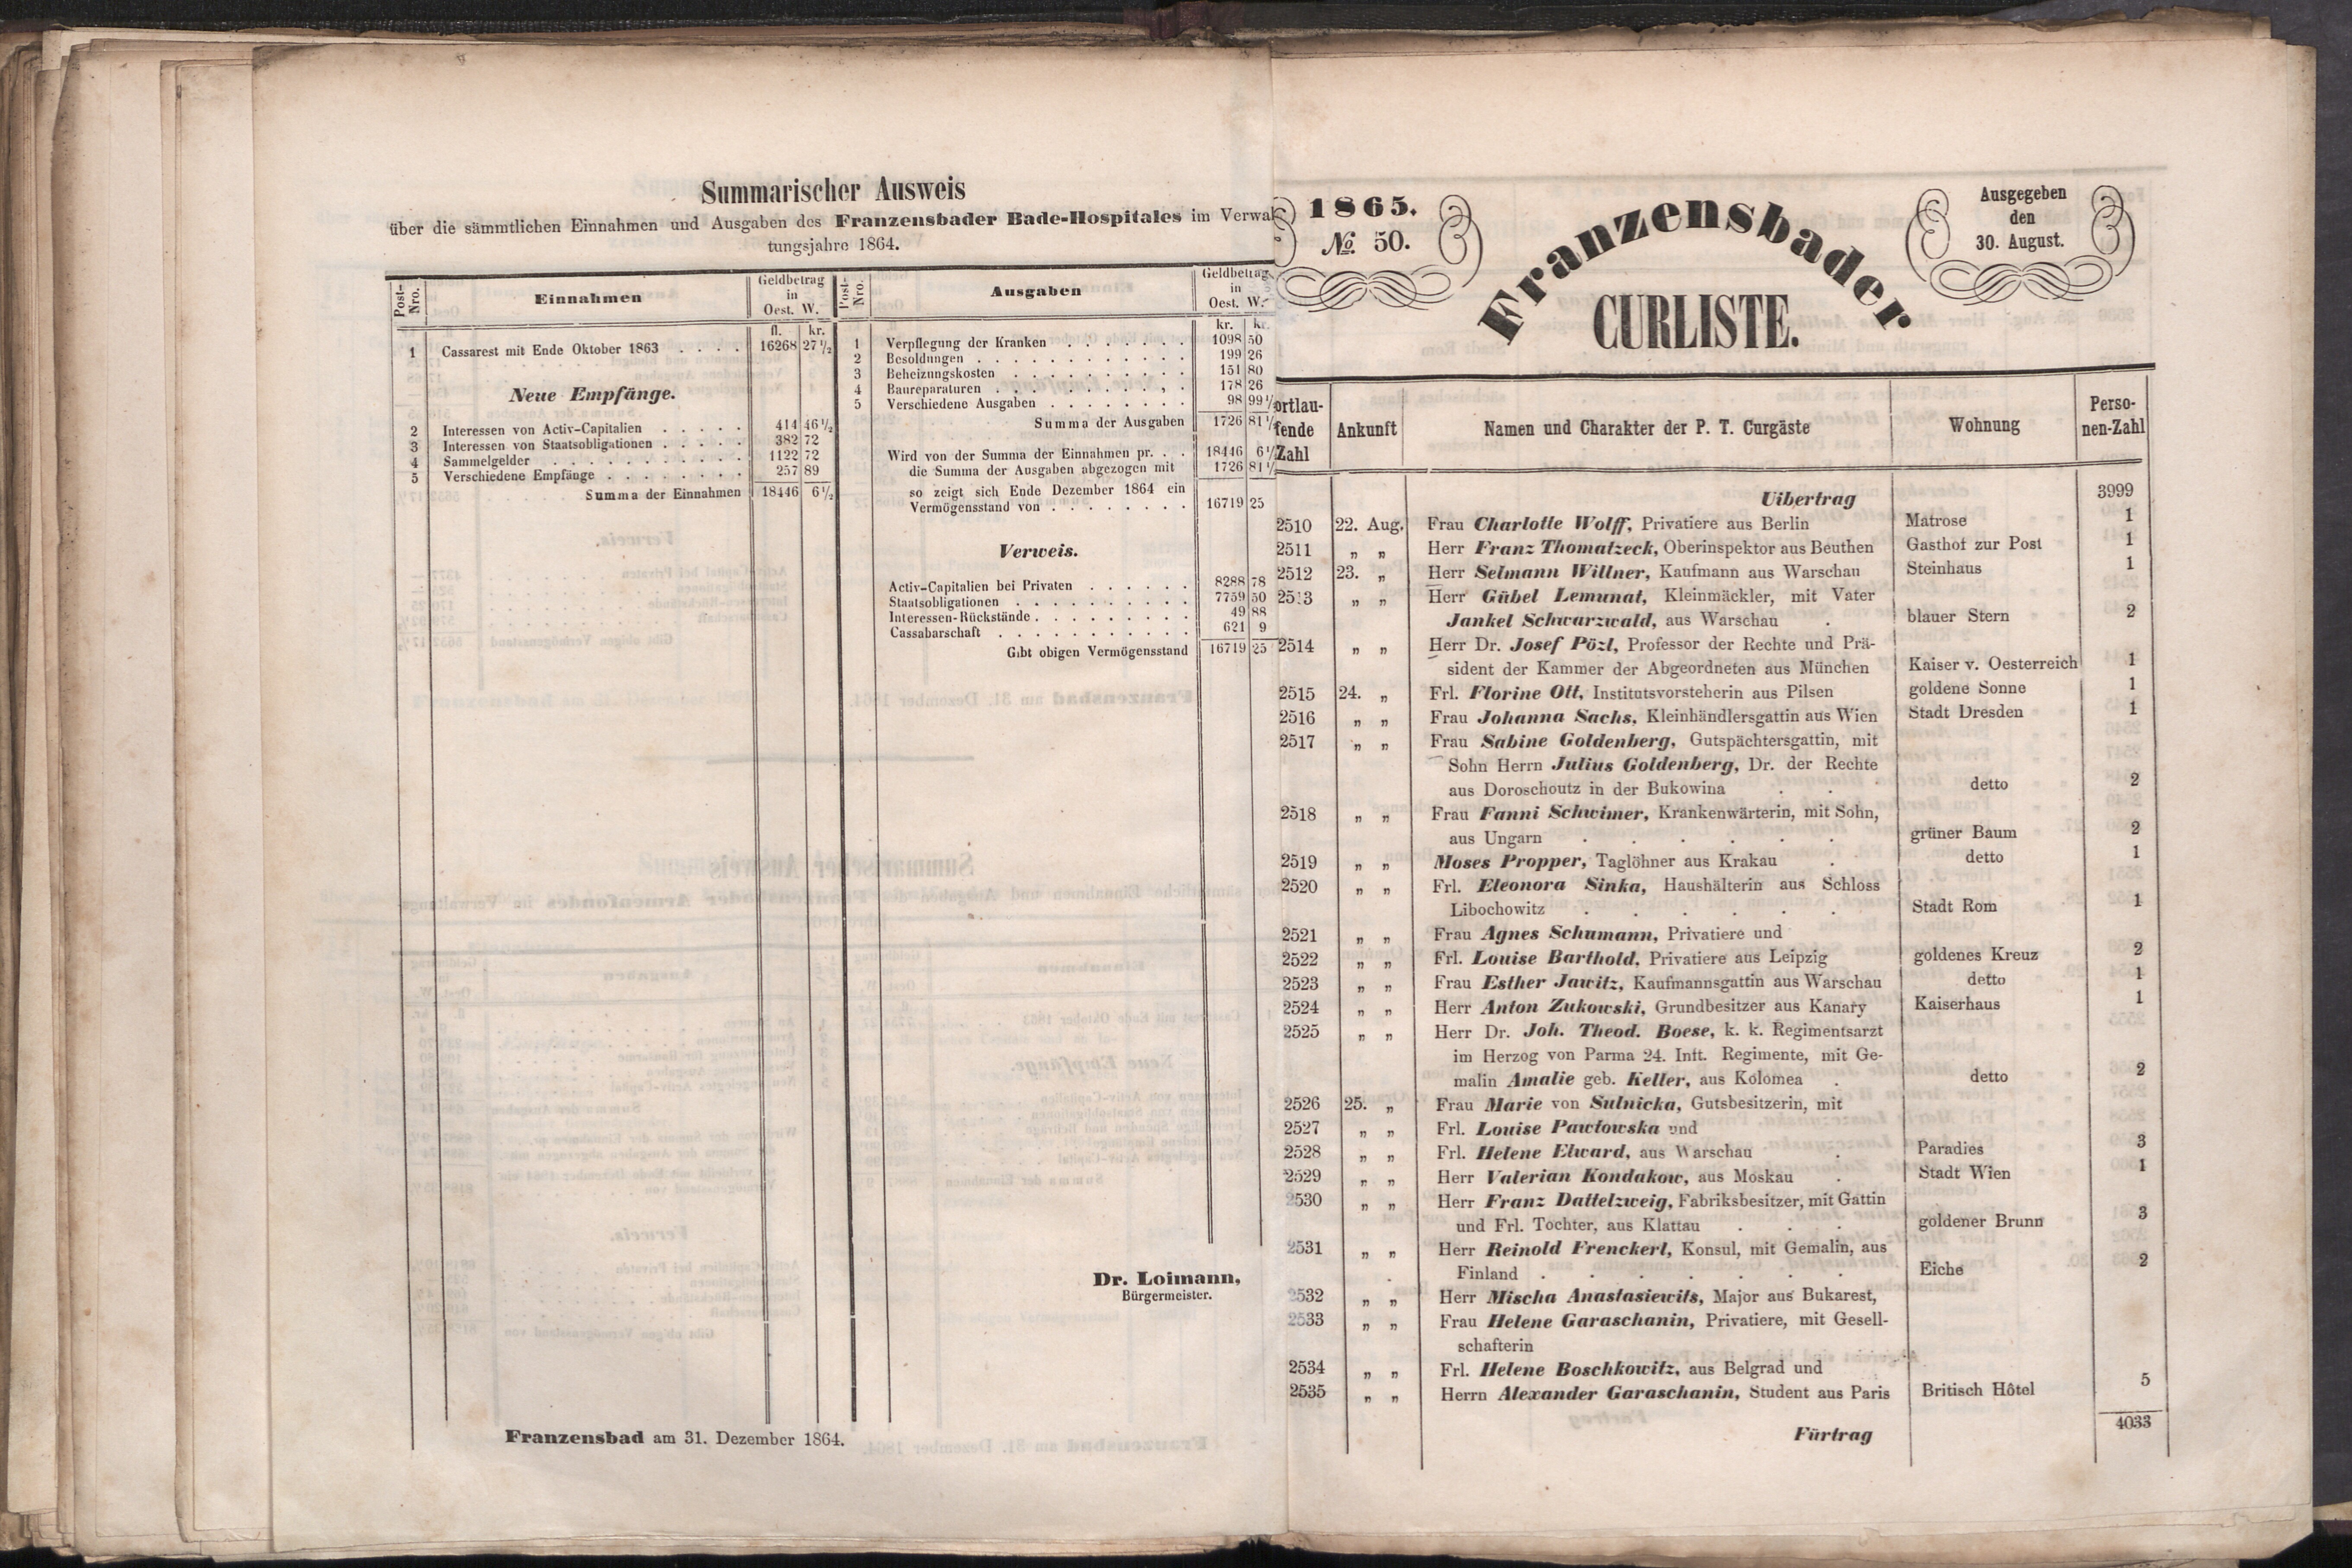 Summarischer Ausweis
über die sämmtlichen Einnahmen und Ausgaben des Franzensbader Bade-Hospitales im Verwal
tungsjahre 1864.
Post-Nro. Einnahmen Geldbetrag in Oest. W.
fl. kr.
1 Cassarest mit Ende Oktober 1863 . . . . 16268 27 1/2
Neue Empfänge.
2 Interessen von Activ-Capitalien . . . . . 414 46 1/2
3 Interessen von Staatsobligationen . . . . . 382 72
4 Sammelgelder . . . . . . . . . . . 1122 72
5 Verschiedene Empfänge . . . . . . . . 257 89
Summa der Einnahmen 18446 6 1/2
Post-Nro. Ausgaben Geldbetrag in Oest. W.
kr. kr.
1 Verpflegung der Kranken . . . . . . . 1098 50
2 Besoldungen . . . . . . . . . . . . 199 26
3 Beheizungskosten . . . . . . . . . . 151 80
4 Baureparaturen . . . . . . . . . , . 178 26
5 Verschiedene Ausgaben . . . . . . . . 98 99 1/
Summa der Ausgaben 1726 81 1/
Wird von der Summa der Einnahmen pr. . . 18446 6 1/
die Summa der Ausgaben abgezogen mit 1726 81 1/
so zeigt sich Ende Dezember 1864 ein
Vermögensstand von . . . . . . . . 16719 25
Verweis.
Activ-Capitalien bei Privaten . . . . . . 8288 78
Staatsobligationen . . . . . . . . . . 7759 50
Interessen-Rückstände . . . . . . . . . 49 88
Cassabarschaft . . . . . . . . . . . 621 9
Gibt obigen Vermögensstand 16719 25
Dr. Loimann,
Bürgermeister.
Franzensbad am 31. Dezember 1864.
1865.
№ 50.
Franzensbader
CURLISTE.
Ausgegeben
den
30. August.
ortlau-
fende
Zahl
Ankunft
Namen und Charakter der P. T. Curgäste
Wohnung
Perso-
nen-Zahl
Uibertrag 3999
2510 22. Aug. Frau Charlotte Wolff, Privatiere aus Berlin Matrose 1
2511 „ „ Herr Franz Thomatzeck, Oberinspektor aus Beuthen Gasthof zur Post 1
2512 23. „ Herr Selmann Willner, Kaufmann aus Warschau Steinhaus 1
2513 „ „ Herr Gübel Lemunat, Kleinmäckler, mit Vater
Jankel Schwarzwald, aus Warschau . blauer Stern 2
2514 „ „ Herr Dr. Josef Pözl, Professor der Rechte und Prä-
sident der Kammer der Abgeordneten aus München Kaiser v. Oesterreich 1
2515 24. „ Frl. Florine Ott, Institutsvorsteherin aus Pilsen goldene Sonne 1
2516 „ „ Frau Johanna Sachs, Kleinhändlersgattin aus Wien Stadt Dresden 1
2517 „ „ Frau Sabine Goldenberg, Gutspächtersgattin, mit
Sohn Herrn Julius Goldenberg, Dr. der Rechte
aus Doroschoutz in der Bukowina . . detto 2
2518 „ „ Frau Fanni Schwimer, Krankenwärterin, mit Sohn,
aus Ungarn . . . . . . grüner Baum 2
2519 „ „ Moses Propper, Taglöhner aus Krakau . detto 1
2520 „ „ Frl. Eleonora Sinka, Haushälterin aus Schloss
Libochowitz . . . . . . Stadt Rom 1
2521 „ „ Frau Agnes Schumann, Privatiere und
2522 „ „ Frl. Louise Barthold, Privatiere aus Leipzig goldenes Kreuz 2
2523 „ „ Frau Esther Jawitz, Kaufmannsgattin aus Warschau detto 1
2524 „ „ Herr Anton Zukowski, Grundbesitzer aus Kanary Kaiserhaus 1
2525 „ „ Herr Dr. Joh. Theod. Boese, k. k. Regimentsarzt
im Herzog von Parma 24. Inft. Regimente, mit Ge-
malin Amalie geb. Keller, aus Kolomea . detto 2
2526 25. „ Frau Marie von Sulnicka, Gutsbesitzerin, mit
2527 „ „ Frl. Louise Pawłowska und
2528 „ „ Frl. Helene Elward, aus Warschau . Paradies 3
2529 „ „ Herr Valerian Kondakow, aus Moskau . Stadt Wien 1
2530 „ „ Herr Franz Dattelzweig, Fabriksbesitzer, mit Gattin
und Frl. Tochter, aus Klattau . . . goldener Brunn 3
2531 „ „ Herr Reinold Frenckerl, Konsul, mit Gemalin, aus
Finland . . . . . . . Eiche 2
2532 „ „ Herr Mischa Anastasiewits, Major aus Bukarest,
2533 „ „ Frau Helene Garaschanin, Privatiere, mit Gesell-
schafterin
2534 „ „ Frl. Helene Boschkowitz, aus Belgrad und
2535 „ „ Herrn Alexander Garaschanin, Student aus Paris Britisch Hôtel 5
Fürtrag 4033